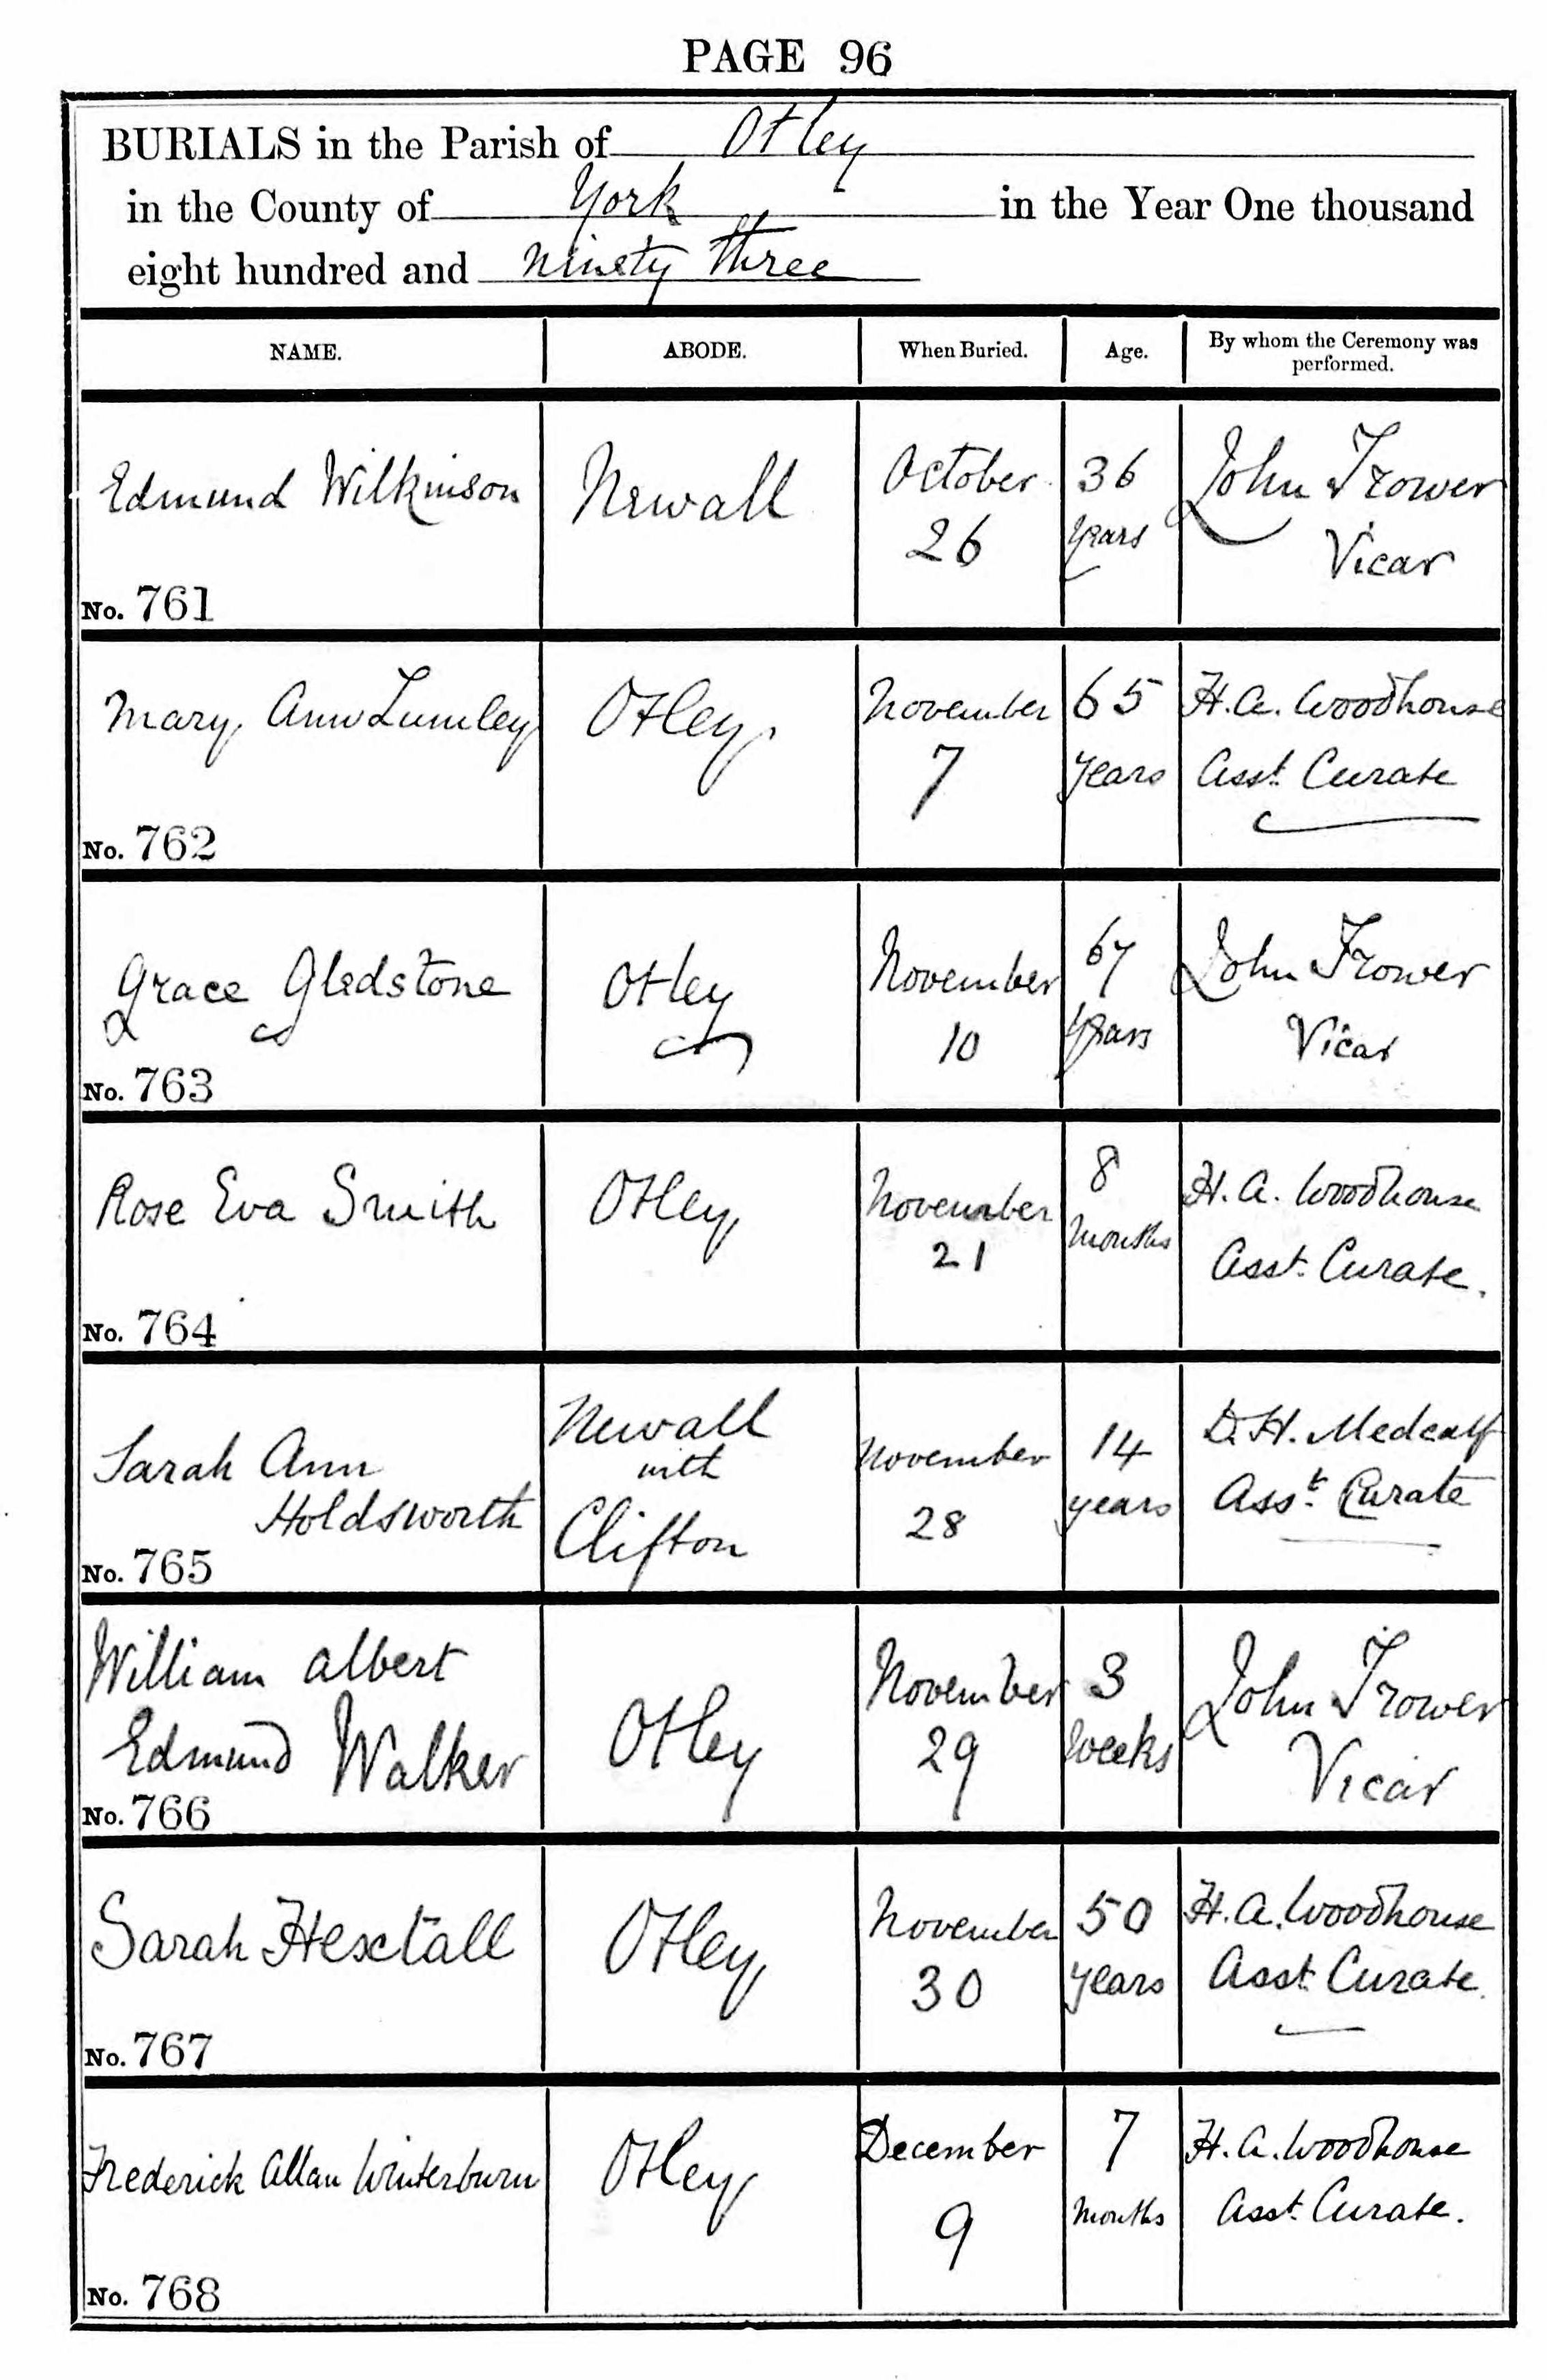 PAGE 96
BURIALS in the Parish of Otley
in the County of York in the Year One thousand
eight hundred and ninety three
NAME. ABODE. When Buried. Age. By whom the Ceremony was performed.
Edmund Wilkinson
No. 761
Newall
October
26
36
years
John Trower
Vicar
Mary Ann Lumley
No. 762
Otley
November
7
65
years
H. A. Woodhouse
Asst. Curate
Grace Gledstone
No. 763
Otley
November
10
67
years
John Trower
Vicar
Rose Eva Smith
No. 764
Otley
November
21
8
months
H. A. Woodhouse
Asst. Curate.
Sarah Ann
Holdsworth
No. 765
Newall
with
Clifton
November
28
14
years
D. H. Medcalf
Asst. Curate
William Albert
Edmund Walker
No. 766
Otley
November
29
3
weeks
John Trower
Vicar
Sarah Hextall
No. 767
Otley
November
30
50
years
H. A. Woodhouse
Asst. Curate.
Frederick Allan Winterburn
No. 768
Otley
December
9
7
months
H. A. Woodhouse
Asst. Curate.